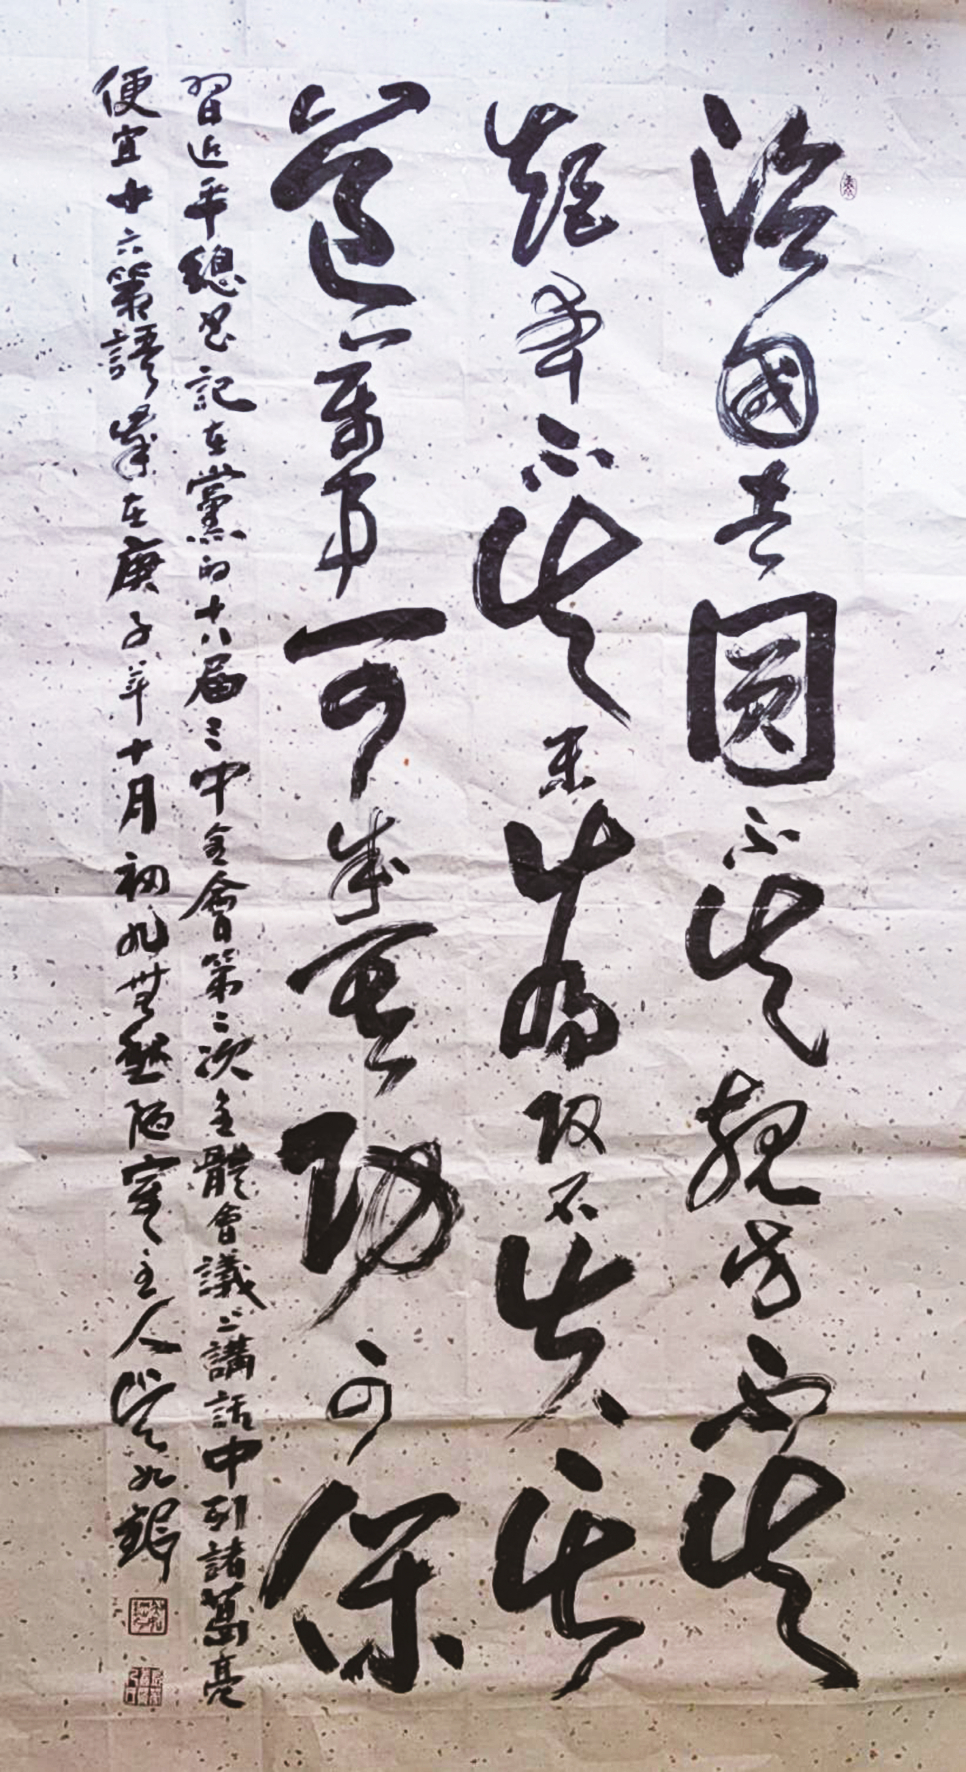 治國者圓不失規方不失
矩本不失末為政不失其
道萬事可成其功可保
習近平總書記在黨的十八届三中全會第二次全體會議上講話中引諸葛亮
便宜十六策語 在庚子年十月初九 陋室主人